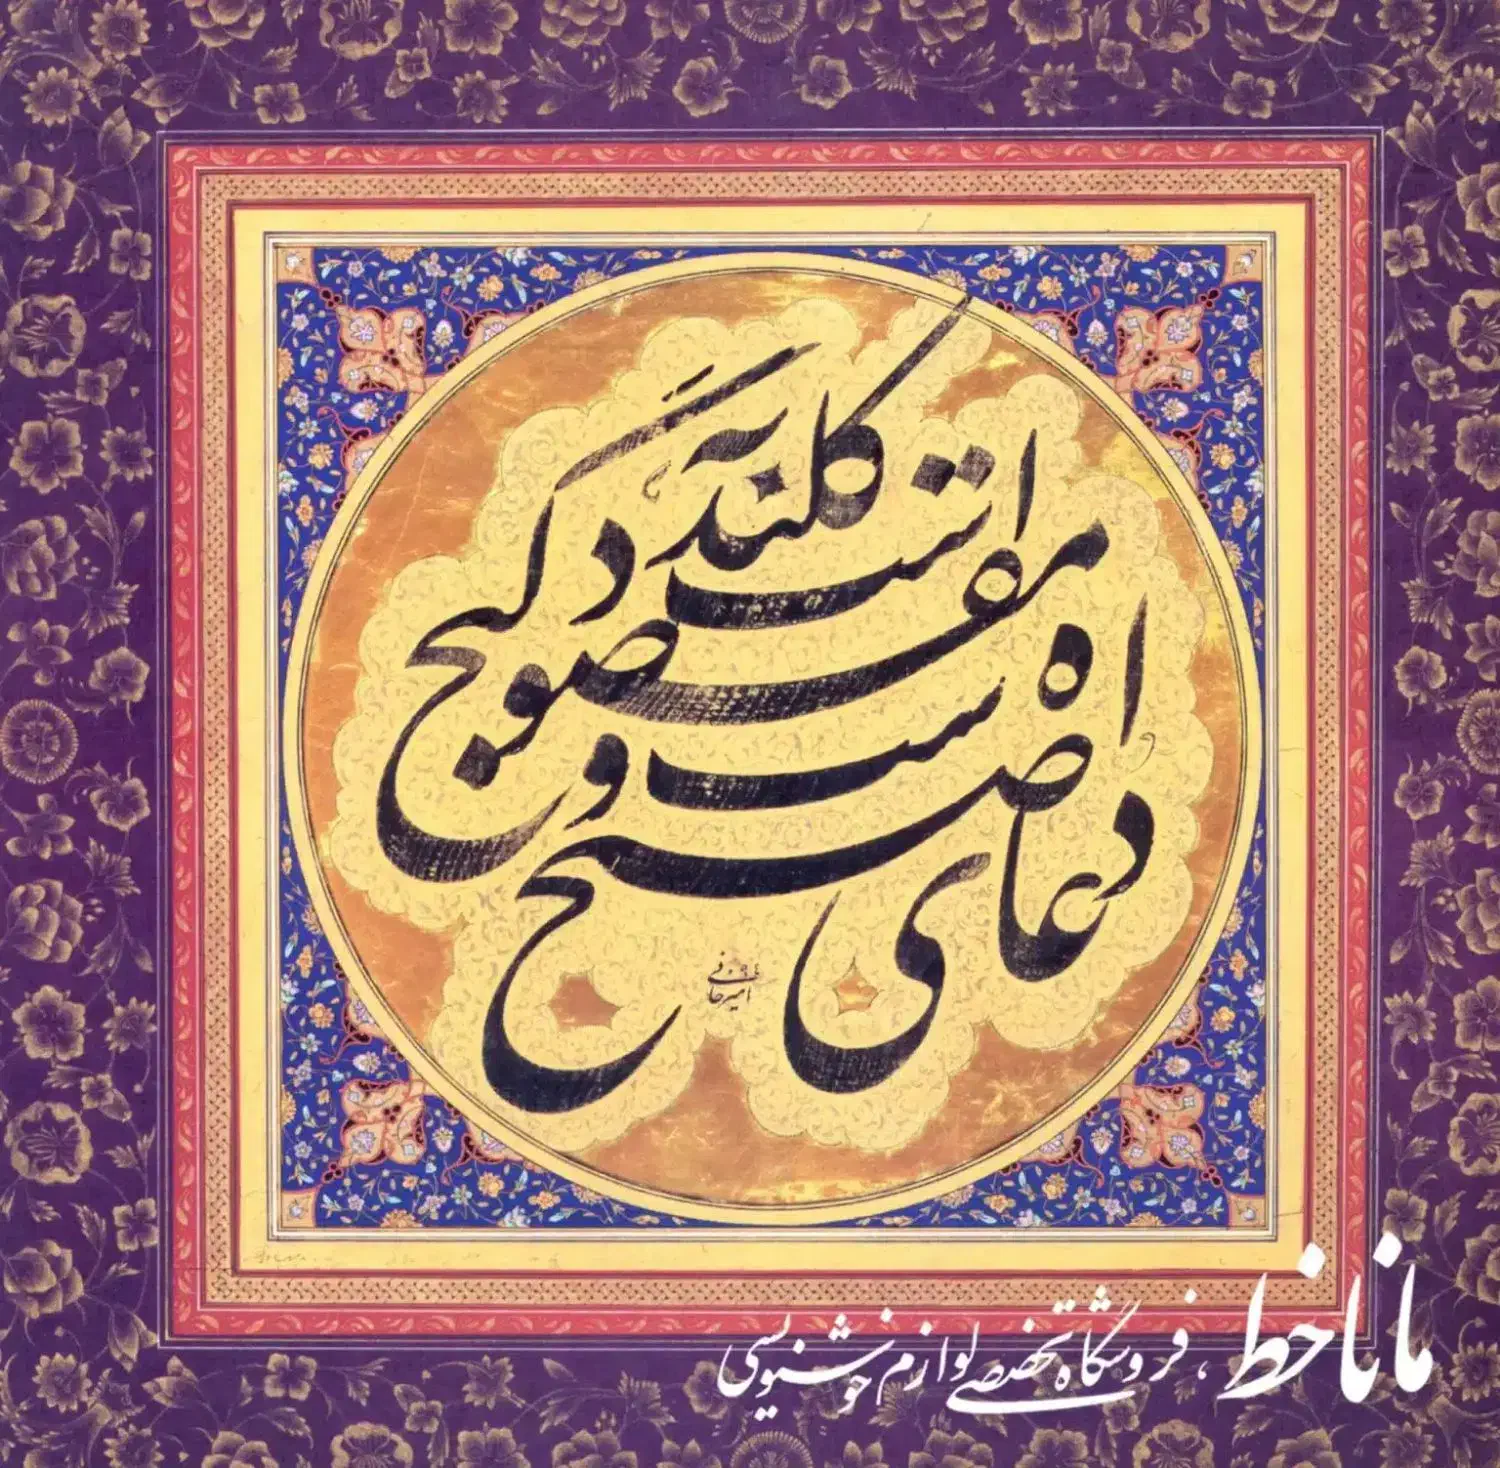 دعای صبح و آه شب کلید گنج مقصود است
امیرخانی
ماناخط ، فروشگاه تخصصی لوازم خوشنویسی